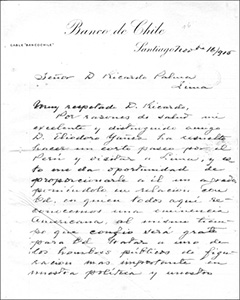 Banco de Chile
CABLE "BANCHILE"
Santiago Nov 16/915
Señor D Ricardo Palma
Lima
Muy respetado D. Ricardo,
Por razones de salud mi
excelente y distinguido amigo
D. Eliodoro Yañez ha resuelto
hacer un corto paseo por el
Perú y visitar a Lima, y es
to me da oportunidad de
proporcionarle a él un agrado
poniéndolo en relacion con
Ud, en quien todos aquí re
conocemos una eminencia
Americana, al mismo tiem
po que confio será grato
para Ud. tratar a uno de
los hombres públicos de figu
racion mas importante en
nuestra política y nuestro